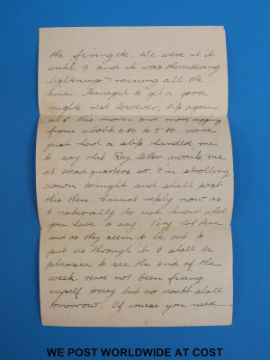 the firing etc. We were at it
until 9 and it was thundering
lightening & raining all the
time. Managed to get a good
nights rest however. Up again
at 5 this morn and more digging
from about 6.00 to 7.00. Have
just had a slip handed me
to say that Reg awaits me
at Headquarters so I'm strolling
down tonight and shall post
this then. Cannot reply now as
I naturally do not know what
you have to say. Very hot here
and as they seem to be out to
put us through it I shall be
pleased to see the end of the
week. Have not been firing
myself today but no doubt shall
tomorrow. Of course you need
WE POST WORLDWIDE AT COST